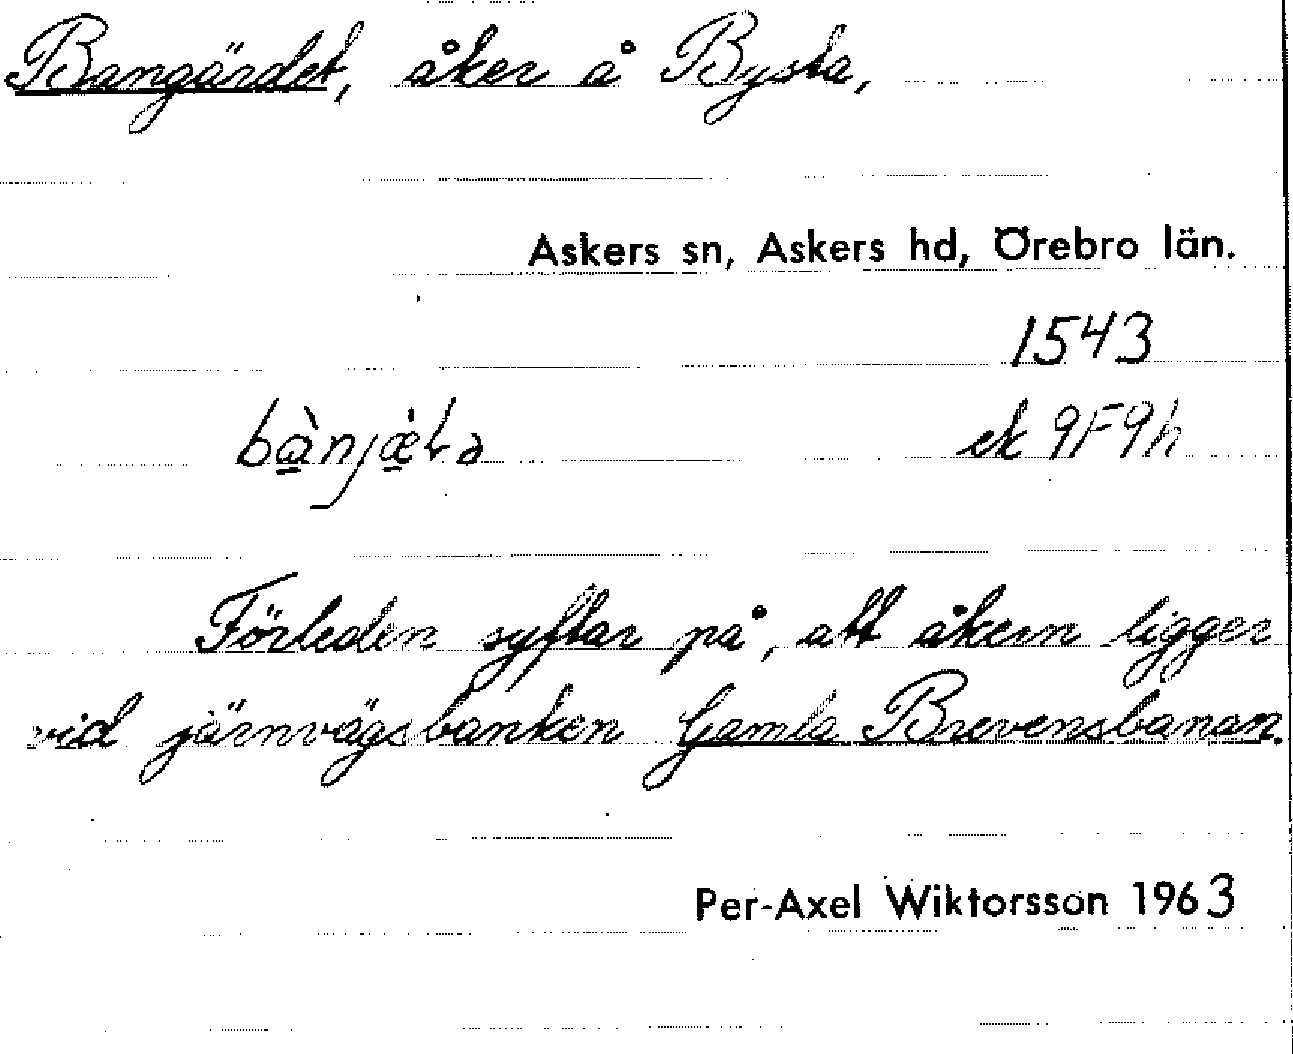 Bangärdet, åker å Bysta,
Askers sn, Askers hd, Örebro län.
1543
ek 9F9h
Förleden syftar på, att åkern ligger
vid järnvägsbanken Gamla Brevensbanan.
Per-Axel Wiktorsson 1963